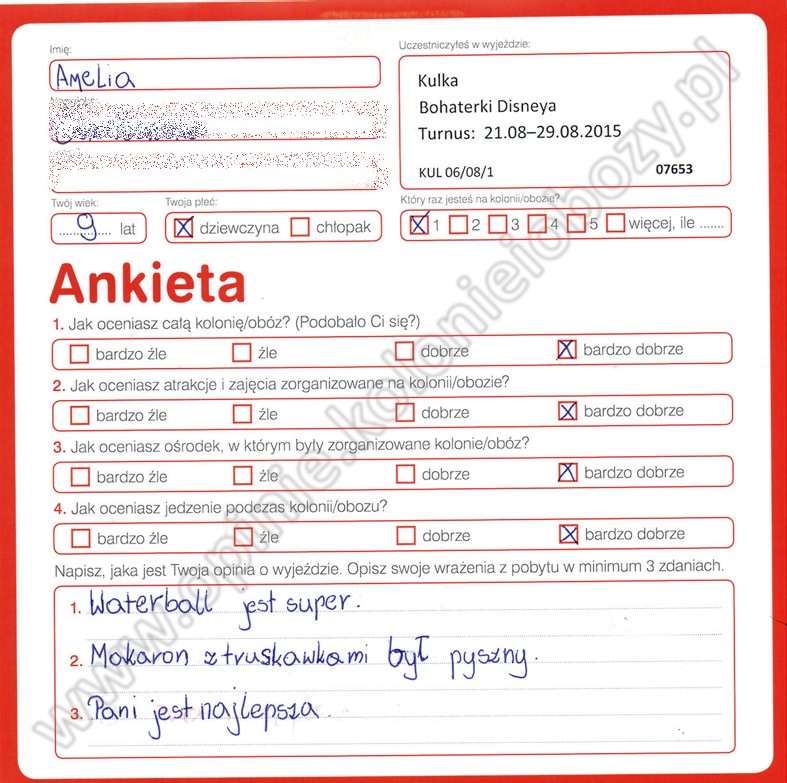 Imię:
Uczestniczyłeś w wyjeździe:
Amelia
Kulka
Bohaterki Disneya
Turnus: 21.08–29.08.2015
KUL 06/08/1 07653
Twój wiek: Twoja płeć: Który raz jesteś na kolonii/obozie?
9 lat dziewczyna chłopak 1 2 3 4 5 więcej, ile .......
Ankieta
1. Jak oceniasz całą kolonię/obóz? (Podobało Ci się?)
bardzo źle źle dobrze bardzo dobrze
2. Jak oceniasz atrakcje i zajęcia zorganizowane na kolonii/obozie?
bardzo źle źle dobrze bardzo dobrze
3. Jak oceniasz ośrodek, w którym były zorganizowane kolonie/obóz?
bardzo źle źle dobrze bardzo dobrze
4. Jak oceniasz jedzenie podczas kolonii/obozu?
bardzo źle źle dobrze bardzo dobrze
Napisz, jaka jest Twoja opinia o wyjeździe. Opisz swoje wrażenia z pobytu w minimum 3 zdaniach.
1. Waterball jest super.
2. Makaron z truskawkami był pyszny.
3. Pani jest najlepsza.
www.opinie.kolonieiobozy.pl